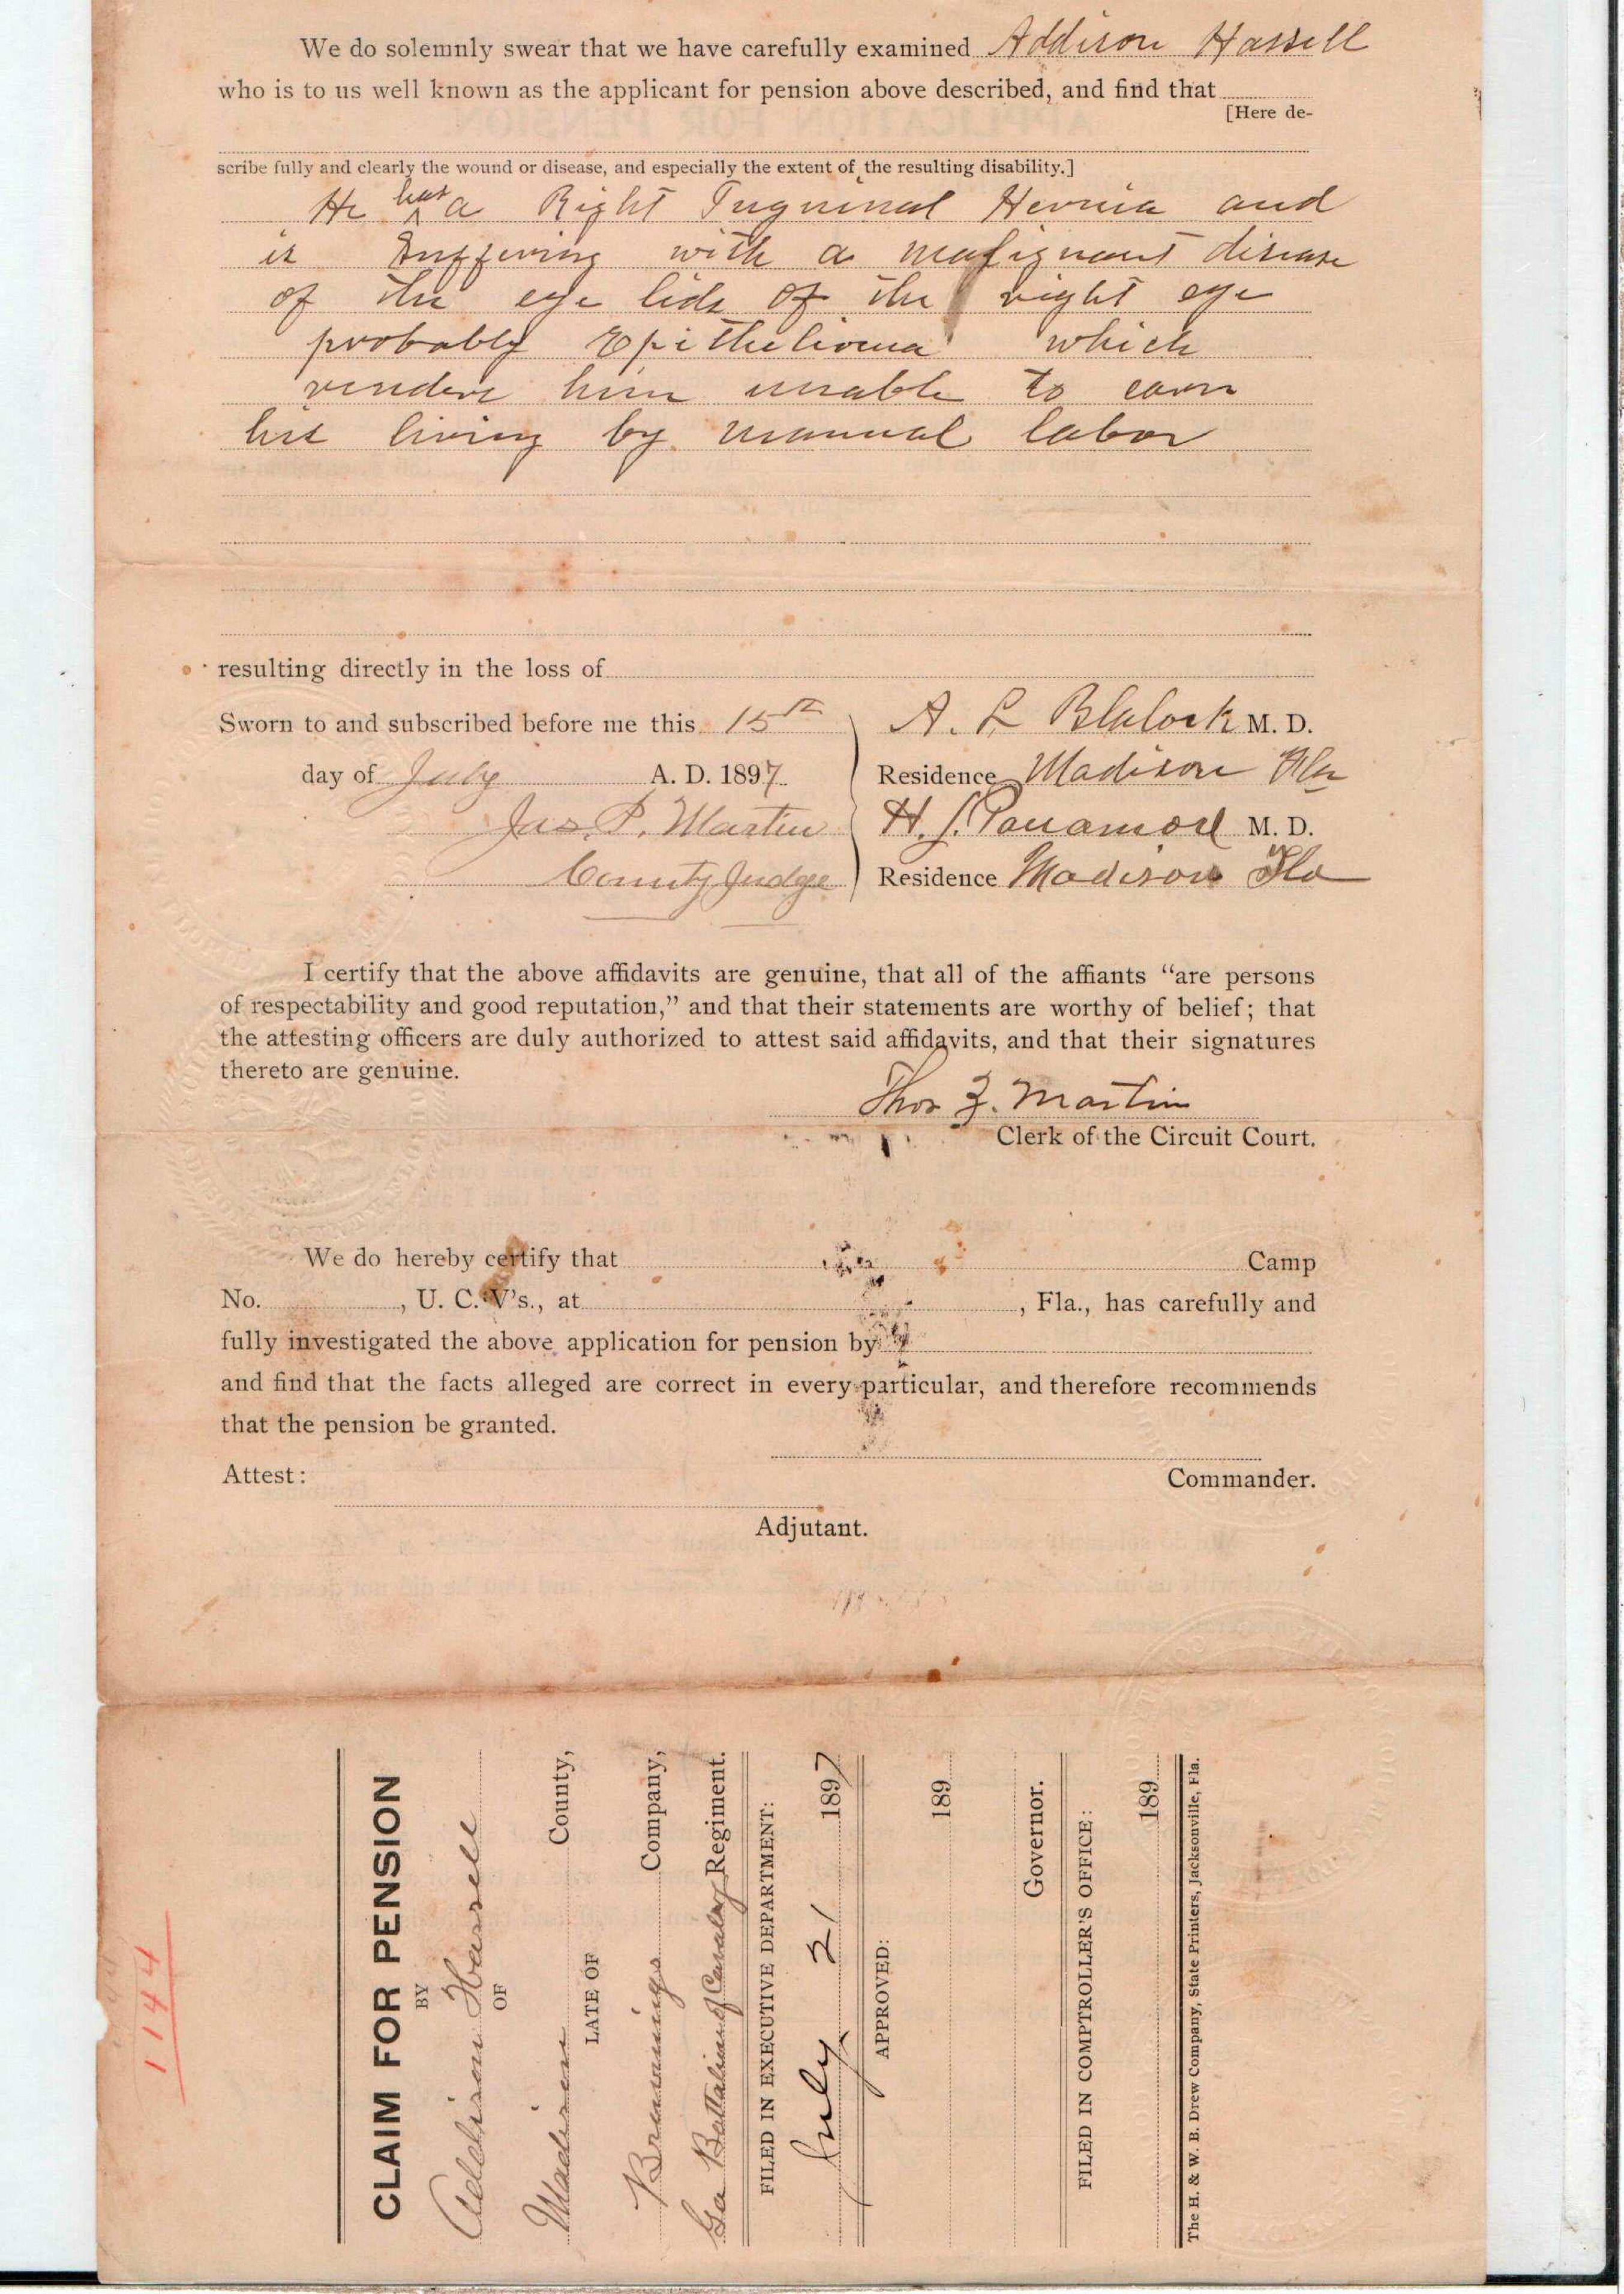 We do solemnly swear that we have carefully examined Addison Hassell
who is to us well known as the applicant for pension above described, and find that
[Here de-
scribe fully and clearly the wound or disease, and especially the extent of the resulting disability.]
He has a Right Inguinal Hernia and
is suffering with a malignant disease
of the eye lids of the right eye
probably Epithelioma which
renders him unable to earn
his living by manual labor
resulting directly in the loss of
Sworn to and subscribed before me this 15th
day of July A. D. 1897
Jas. P. Martin
County Judge
A. L Blalock M. D.
Residence Madison Fla
H. J. Parramore M. D.
Residence Madison Fla
I certify that the above affidavits are genuine, that all of the affiants “are persons
of respectability and good reputation,” and that their statements are worthy of belief; that
the attesting officers are duly authorized to attest said affidavits, and that their signatures
thereto are genuine.
Thos Z. Martin
Clerk of the Circuit Court.
We do hereby certify that Camp
No. , U. C. V's., at , Fla., has carefully and
fully investigated the above application for pension by
and find that the facts alleged are correct in every particular, and therefore recommends
that the pension be granted.
Commander.
Attest:
Adjutant.
1144
CLAIM FOR PENSION
BY
Addison Hassell
OF
Madison County,
LATE OF
Brunnings Company,
Ga Battalion of Cavalry Regiment.
FILED IN EXECUTIVE DEPARTMENT:
July 21 1897
APPROVED:
189
Governor.
FILED IN COMPTROLLER'S OFFICE:
189
The H. & W. B. Drew Company, State Printers, Jacksonville, Fla.